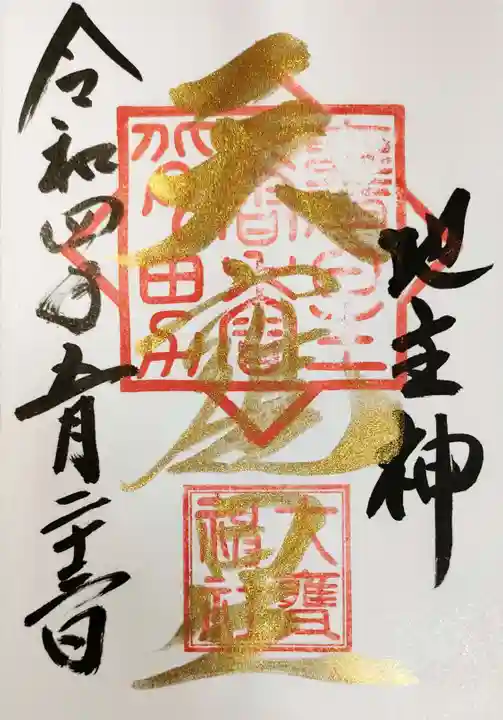 地主神
天甕星
大甕
神社
令和四年五月二十三日